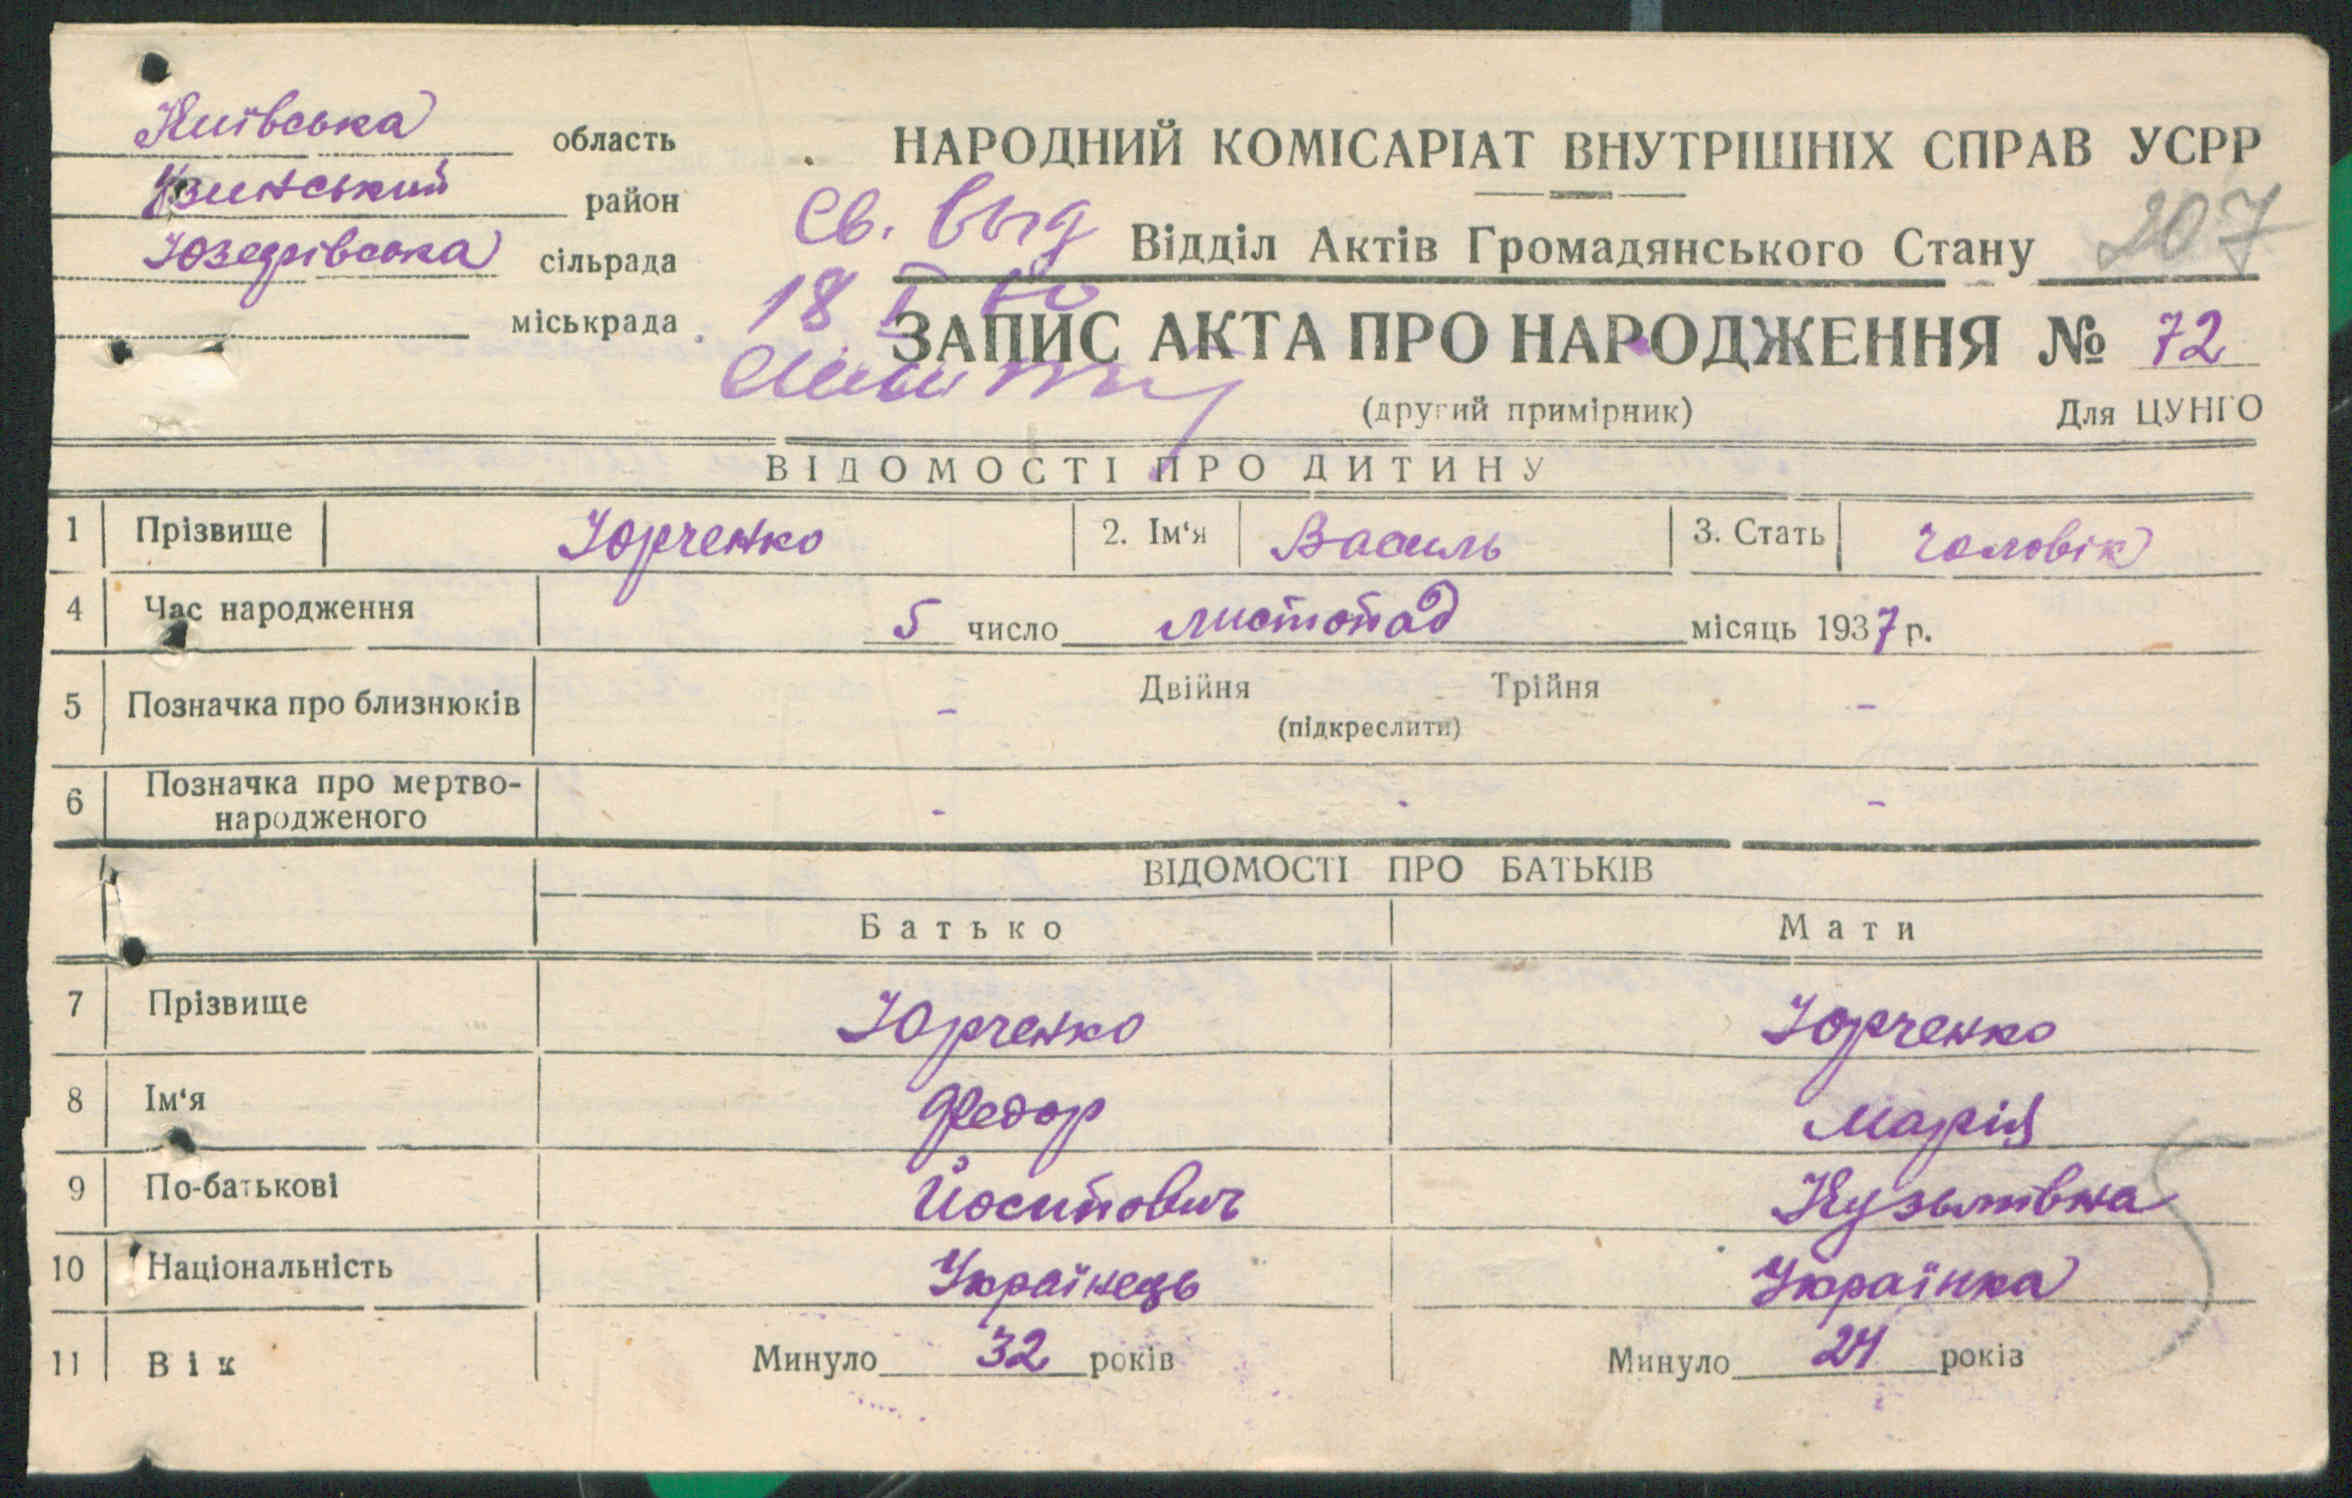 Київська область
Узинський район
Юзефівська сільрада
міськрада
НАРОДНИЙ КОМІСАРІАТ ВНУТРІШНІХ СПРАВ УСРР
Св. выд
Відділ Актів Громадянського Стану 207
18
ЗАПИС АКТА ПРО НАРОДЖЕННЯ № 72
(другий примірник) Для ЦУНГО
ВІДОМОСТІ ПРО ДИТИНУ
1 Прізвище Юрченко 2. Ім'я Василь 3. Стать чоловік
4 Час народження 5 число листопад місяць 1937 р.
5 Позначка про близнюків - Двійня Трійня -
(підкреслити)
6 Позначка про мертво-
народженого - - -
ВІДОМОСТІ ПРО БАТЬКІВ
Батько Мати
7 Прізвище Юрченко Юрченко
8 Ім'я Федор Марія
9 По-батькові Йосипович Кузьмівна
10 Національність Українець Українка
11 Вік Минуло 32 років Минуло 24 років